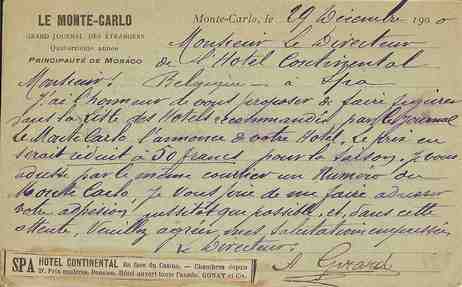 LE MONTE-CARLO
GRAND JOURNAL DES ÉTRANGERS
Quatorzième année
PRINCIPAUTÉ DE MONACO
Monte-Carlo, le 29 Décembre 1900
Monsieur Le Directeur
de l'Hotel Continental
Belgique - à Spa
Monsieur!
J'ai l'honneur de vous proposer de faire figurer
dans la liste des Hotels Recommandés par le Journal
Le Monte Carlo l'annonce de votre Hotel. Le prix en
serait réduit à 50 francs pour la Saison. Je vous
adresse par le même courrier un Numéro du
Monte Carlo, Je Vous prie de me faire adresser
votre adhésion aussitôt que possible, et, dans cette
attente, Veuillez agréer, mes, salutations empressées
Le Directeur,
A Girard
SPA HOTEL CONTINENTAL En face du Casino. — Chambres depuis
2f. Prix modérés. Pension. Hôtel ouvert toute l'année. GONAY et Cie.